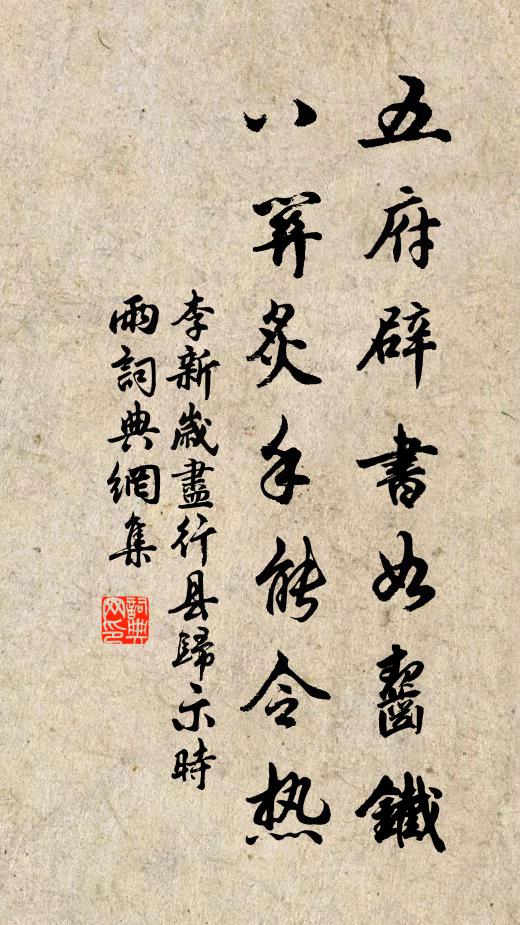 五府辟書如齧鐵
八炙手能令热
李新歲盡行县歸示時
雨詞典網集
詞典
网印